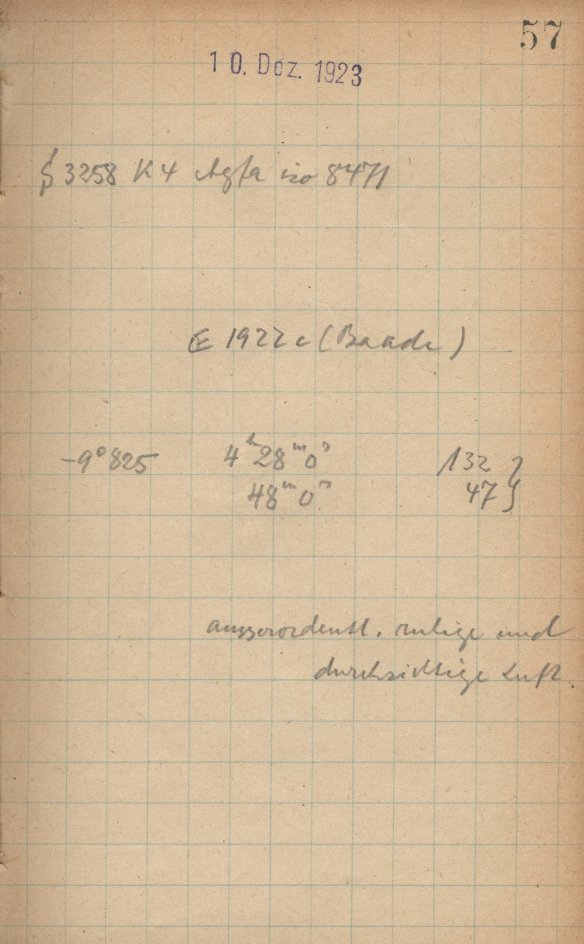 57
10. Dez. 1923
§ 3258 K4 Agfa iso 8471
1922c (Baade)
-9° 825 4ʰ28ᵐ0ˢ 132 }
48ᵐ0ˢ 47 }
ausserordentl. ruhige und
durchsichtige Luft.